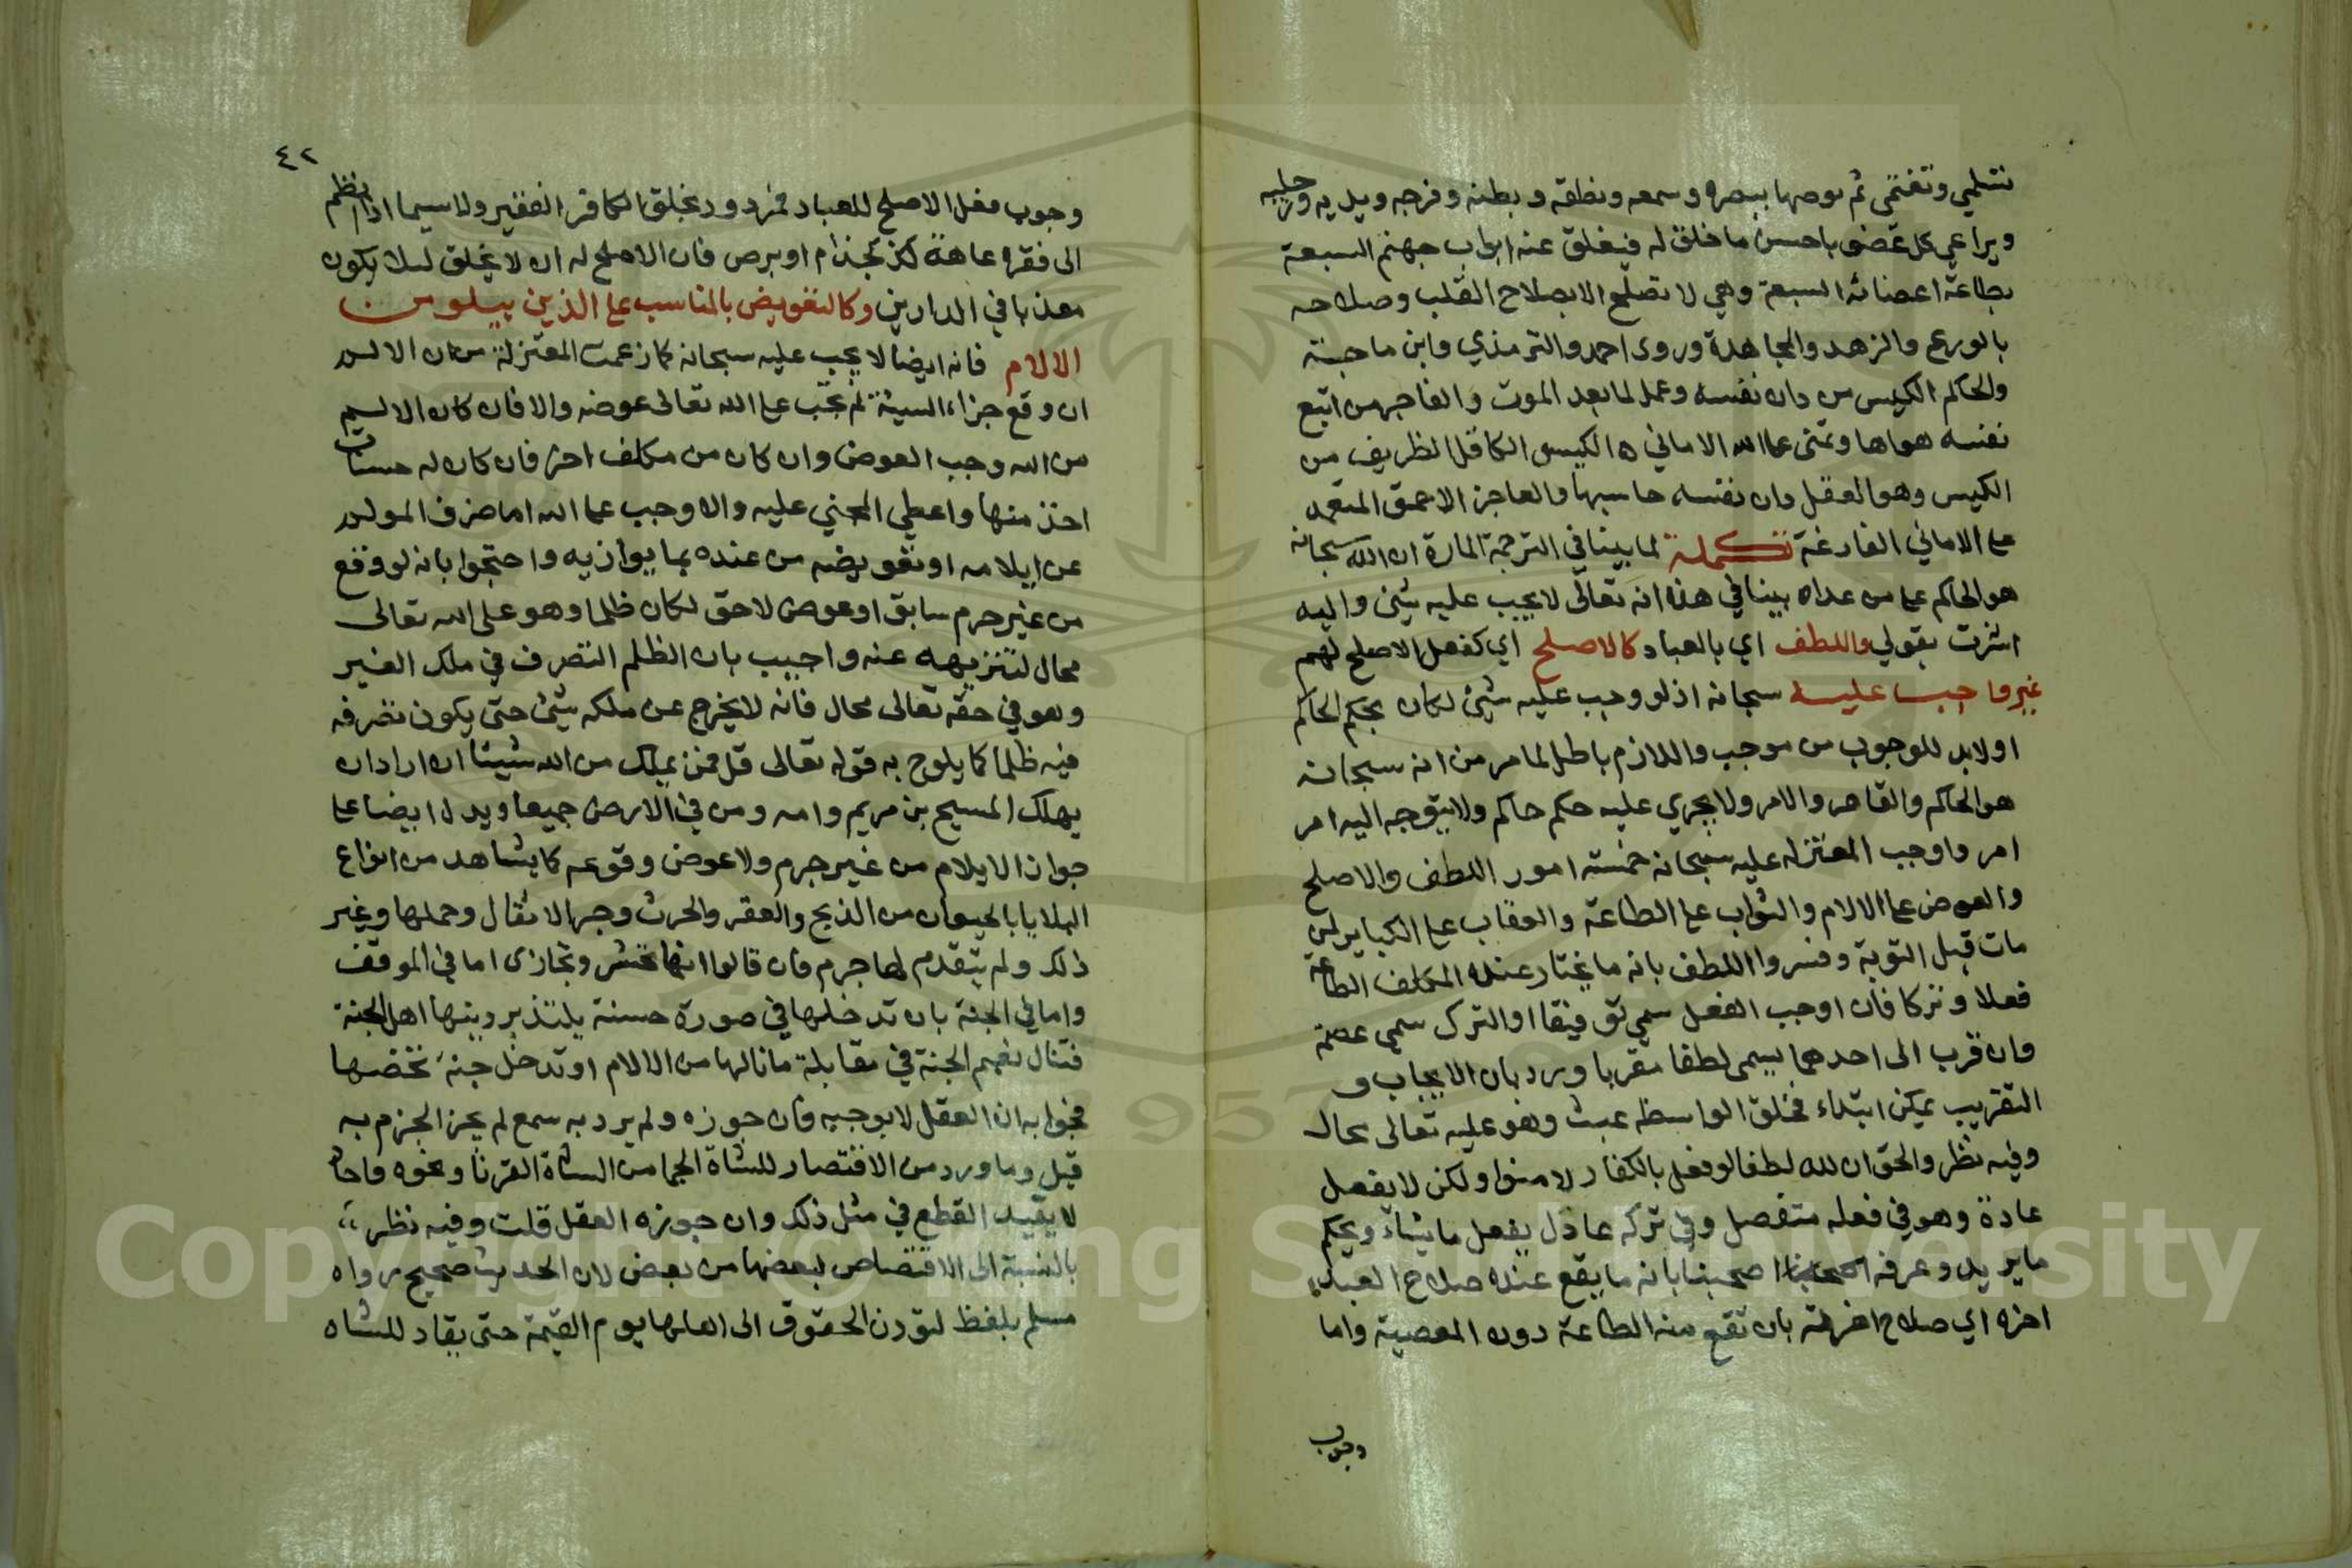 ثم يوصها ببصره وسمعه ونطقه وبطنه وفرجه ويديه ورجليه
ويراعي كل عضو باحسن ما خلق له فيغلق عنه ابواب جهنم السبعة
بطاعة اعضائه السبعة وهي لا تصلح الا بصلاح القلب وصلاحه
بالورع والزهد والمجاهدة وروى احمد والترمذي وابن ماجة
والحاكم الكيس من دان نفسه وعمل لما بعد الموت والفاجر من اتبع
نفسه هواها وتمنى على الله الاماني ه الكيس العاقل الظريف من
الكيس وهو العقل دان نفسه حاسبها والعاجز الاحمق المتعمد
على الاماني الفارغة تكملة لما بينا في الترجمة المارة ان الله سبحانه
هو الحاكم على من عداه بينا في هذا انه تعالى لا يجب عليه شئ واليه
اشرت بقولي واللطف اي بالعباد كالاصلح اي كفعل الاصلح لهم
غير واجب عليه سبحانه اذ لو وجب عليه شئ لكان بحكم الحاكم
اولابد للوجوب من موجب واللازم باطل لما مر من انه سبحانه
هو الحاكم والقاهر والامر ولا يجري عليه حكم حاكم ولا يتوجه اليه امر
امر واوجب المعتزله عليه سبحانه خمسة امور اللطف والاصلح
والعوض على الالام والثواب على الطاعة والعقاب على الكبائر لمن
مات قبل التوبة وفسروا اللطف بانه ما يختار عنده المكلف الطاعة
فعلا وتركا فان اوجب الفعل سمي توفيقا او الترك سمي عصمة
وان قرب الى احدهما يسمى لطفا مقربا ورد بان الايجاب و
التقريب يمكن ابتداء فخلق الواسطه عبث وهو عليه تعالى محال
وفيه نظر والحق ان لله لطفا لو فعل بالكفار لامنوا ولكن لا يفعل
عادة وهو في فعله متفضل وفي تركه عادل يفعل ما يشاء ويحكم
ما يريد وعرفه اصحبنا بانه ما يقع عنده صلاح العبد
اخره اي صلاح اخرته بان تقع منه الطاعة دون المعصية واما
وجوب
٤٢
وجوب فعل الاصلح للعباد فمردود بخلق الكافر الفقير ولا سيما اذا انضم
الى فقره عاهة كجذام او برص فان الاصلح له ان لا يخلق لئلا يكون
معذبا في الدارين وكالتعويض بالمناسب على الذين يبلو من
الالام فانه ايضا لا يجب عليه سبحانه كما زعمت المعتزلة من ان الالم
ان وقع جزاء السيئة لم يجب على الله تعالى عوضه والا فان كان الالم
من الله وجب العوض وان كان من مكلف اخر فان كان له حسنات
اخذ منها واعطي المجني عليه والا وجب على الله اما صرف المولم
عن ايلامه او تعويضه من عنده بما يوازيه واحتجوا بانه لو وقع
من غير جرم سابق او عوض لاحق لكان ظلما وهو على الله تعالى
محال لتنزيهه عنه واجيب بان الظلم التصرف في ملك الغير
وهو في حقه تعالى محال فانه لا يخرج عن ملكه شئ حتى يكون تصرفه
فيه ظلما كما يلوح به قوله تعالى قل فمن يملك من الله شيئا ان اراد ان
يهلك المسيح بن مريم وامه ومن في الارض جميعا ويدل ايضا على
جواز الايلام من غير جرم ولا عوض وقوعه كما يشاهد من انواع
البلايا بالحيوان من الذبح والعقر والحرث وجر الاثقال وحملها وغير
ذلك ولم يتقدم لها جرم فان قالوا انها تحشر وتجازى اما في الموقف
واما في الجنة بان تدخلها في صورة حسنة يلتذ برويتها اهل الجنة
فتنال نعيم الجنة في مقابلة ما نالها من الالام او تدخل جنة تخصها
فجوابه ان العقل لا يوجبه فان جوزه ولم يرد به سمع لم يجز الجزم به
قيل وما ورد من الاقتصار للشاة الجما من الشاة القرنا ونحوه فاحاد
لا يفيد القطع في مثل ذلك وان جوزه العقل قلت وفيه نظر
بالنسبة الى الاقتصاص لبعضها من بعض لان الحديث صحيح رواه
مسلم بلفظ لتؤدن الحقوق الى اهلها يوم القيمة حتى يقاد للشاه
Copyright © King Saud University
957